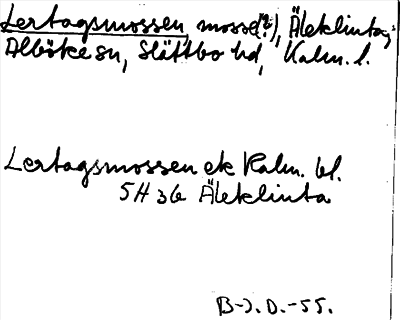 Lertagsmossen mosse(?), Äleklinta,
Alböke sn, Slättbo hd, Kalm. l.
Lertagsmossen ek Kalm. bl.
5H 3g Äleklinta
B-J.D.-55.